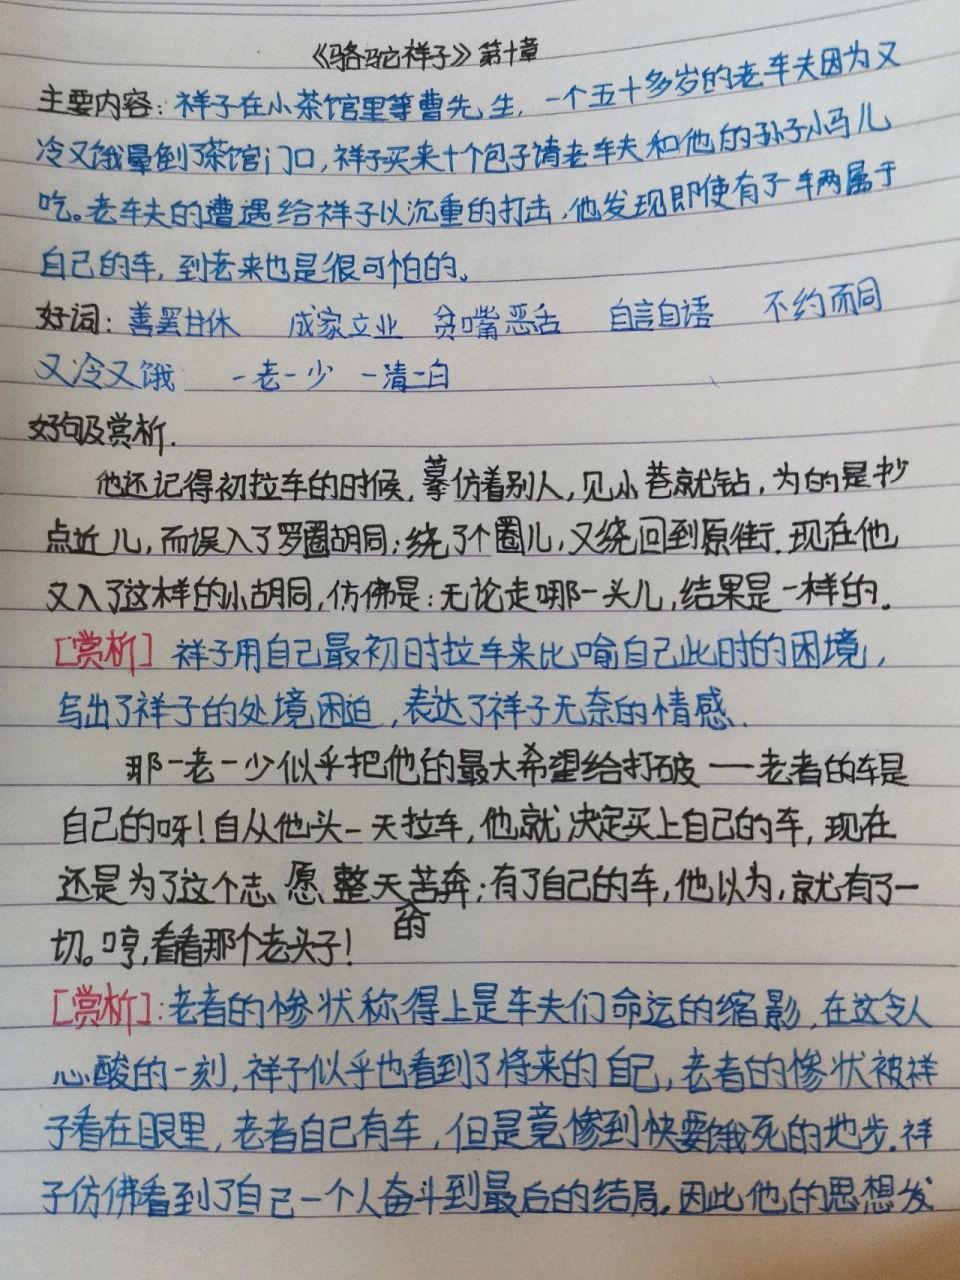 《骆驼祥子》第十章
主要内容：祥子在小茶馆里等曹先生，一个五十多岁的老车夫因为又
冷又饿晕倒了茶馆门口，祥子买来十个包子请老车夫和他的孙子小马儿
吃。老车夫的遭遇给祥子以沉重的打击，他发现即使有了一车两属于
自己的车，到老来也是很可怕的。
好词：善罢甘休 成家立业 贫嘴恶舌 自言自语 不约而同
又冷又饿 一老一少 一清二白
好句及赏析.
他还记得初拉车的时候，摹仿着别人，见小巷就钻，为的是抄
点近儿，而误入了罗圈胡同；绕了个圈儿，又绕回到原街.现在他
又入了这样的小胡同，仿佛是：无论走哪一头儿，结果是一样的。
[赏析] 祥子用自己最初时拉车来比喻自己此时的困境，
写出了祥子的处境困迫，表达了祥子无奈的情感.
那一老一少似乎把他的最大希望给打破——老者的车是
自己的呀！自从他头一天拉车，他就决定买上自己的车，现在
还是为了这个志愿整天的苦奔；有了自己的车，他以为，就有了一
切。哼，看看那个老头子！
[赏析]：老者的惨状称得上是车夫们命运的缩影，在这令人
心酸的一刻，祥子似乎也看到了将来的自己，老者的惨状被祥
子看在眼里，老者自己有车，但是竟惨到快要饿死的地步.祥
子仿佛看到了自己一个人奋斗到最后的结局。因此他的思想发